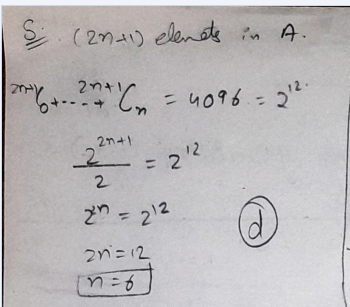 S: (2n+1) elements in A.
²ⁿ⁺¹C₀ + --- + ²ⁿ⁺¹Cₙ = 4096 = 2¹².
2²ⁿ⁺¹ / 2 = 2¹²
2ⁿ = 2¹²
(d)
2n = 12
n = 6